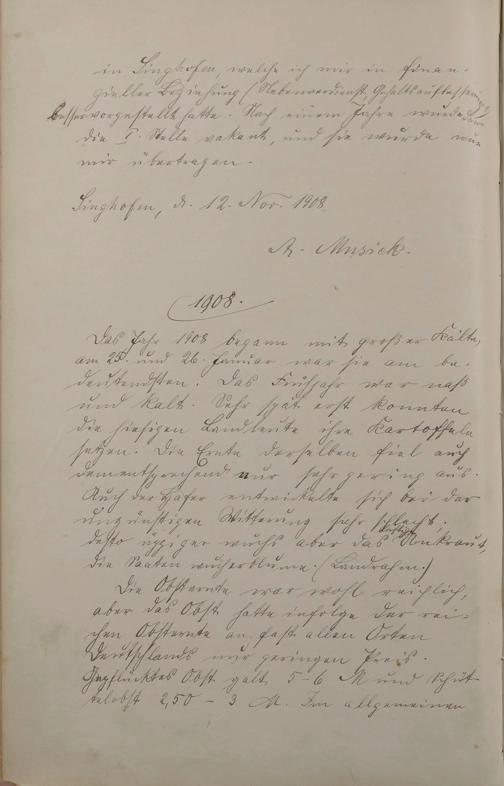 in Singhofen, welche ich mir in finan-
zieller Beziehung (Nebenverdienst, Gehaltsaufbesserung)
besser vorgestellt hatte. Nach einem Jahre wurde dann
die I. Stelle vakant, und sie wurde nun
mir übertragen.
Singhofen, d. 12. Nov. 1908.
A. Musick.
1908.
Das Jahr 1908 begann mit großer Kälte,
am 25. und 26. Januar war sie am be-
deutendsten. Das Frühjahr war naß
und kalt. Sehr spät erst konnten
die hiesigen Landleute ihre Kartoffeln
setzen. Die Ernte derselben fiel auch
dementsprechend nur sehr gering aus.
Auch der Hafer entwickelte sich bei der
ungünstigen Witterung sehr schlecht,
desto üppiger wuchs aber das Unkraut,
die Saatenwucherblume. (Landrahm.)
Die Obsternte war wohl reichlich,
aber das Obst hatte infolge der rei-
chen Obsternte an fast allen Orten
Deutschlands nur geringen Preis.
Gepflücktes Obst galt 5-6 M und Schüt-
telobst 2,50 - 3 M. Im allgemeinen